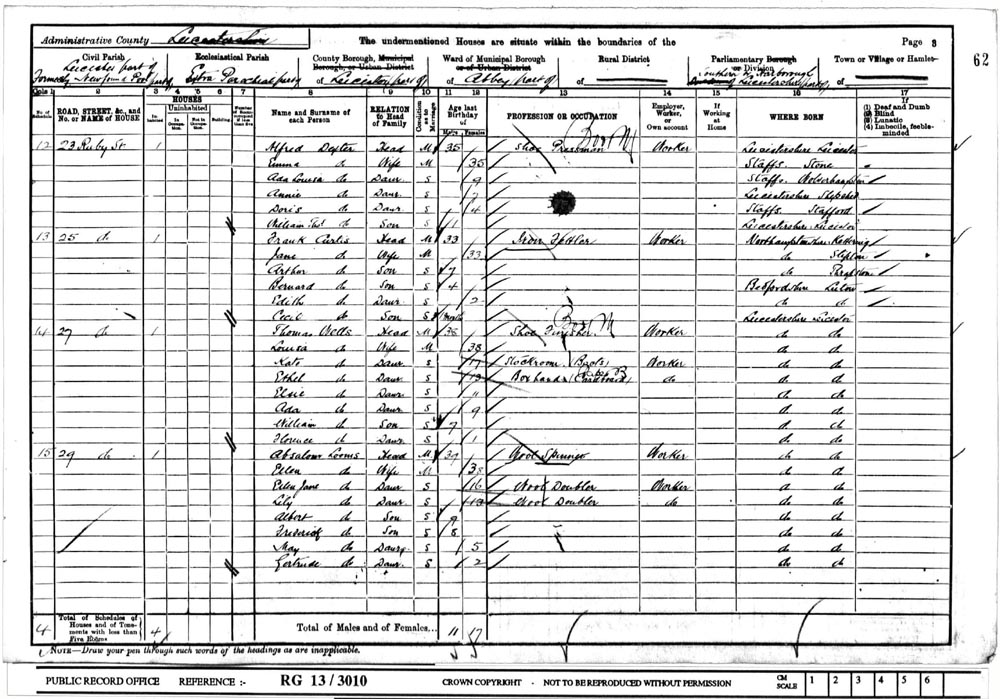 Administrative County Leicestershire The undermentioned Houses are situate within the boundaries of the Page 8
62
Civil Parish Ecclesiastical Parish County Borough, Municipal Borough, or Urban District Ward of Municipal Borough or of Urban District Rural District Parliamentary Borough or Division Town or Village or Hamlet
Leicester part of
of Leicester part of of Abbey part of of
Cols. 1 2 3 4 5 6 7 8 9 10 11 12 13 14 15 16 17
No. of Schedule ROAD, STREET, &c., and No. or NAME of HOUSE HOUSES Inhabited Uninhabited In Occupation Not in Occupation Building Number of Rooms occupied if less than five Name and Surname of each Person RELATION to Head of Family Condition as to Marriage Age last Birthday of Males Females PROFESSION OR OCCUPATION Employer, Worker, or Own account If Working at Home WHERE BORN If (1) Deaf and Dumb (2) Blind (3) Lunatic (4) Imbecile, feeble-minded
12 23 Ruby St 1 Alfred Dexter Head M 35 Shoe Pressman Boot M Worker Leicestershire Leicester
Emma do Wife M 35 Staffs. Stone
Ada Louisa do Daur S 9 Staffs. Wolverhampton
Annie do Daur S 7 Leicestershire Shepshed
Doris do Daur S 4 Staffs. Stafford
William Thos do Son S 1 Leicestershire Leicester
13 25 do 1 Frank Curtis Head M 33 Iron Fettler Worker Northamptonshire Kettering
Jane do Wife M 33 do Islip
Arthur do Son S 7 do Thrapston
Bernard do Son S 4 Bedfordshire Luton
Edith do Daur S 2 do do
Cecil do Son S Leicestershire Leicester
14 27 do 1 Thomas Wells Head M 38 Shoe Finisher Boot M Worker do do
Louisa do Wife M 38 do do
Kate do Daur S 17 Stockroom (Boots) Worker do do
Ethel do Daur S 13 Box hand (Cardboard) do do do
Elsie do Daur S 11 do do
Ada do Daur S 9 do do
William do Son S 7 do do
Florence do Daur S 1 do do
15 29 do 1 Absalom Looms Head M 37 Wool Spinner Worker do do
Ellen do Wife M 38 do do
Ellen Jane do Daur S 16 Wool Doubler Worker do do
Lily do Daur S 13 Wool Doubler do do do
Albert do Son S 9 do do
Frederick do Son S 8 do do
May do Daur S 5 do do
Gertrude do Daur S 2 do do
4 Total of Schedules of Houses and of Tenements with less than Five Rooms 4 Total of Males and of Females... 11 17
NOTE—Draw your pen through such words of the headings as are inapplicable.
PUBLIC RECORD OFFICE REFERENCE :- RG 13 / 3010 CROWN COPYRIGHT - NOT TO BE REPRODUCED WITHOUT PERMISSION CM SCALE 1 2 3 4 5 6